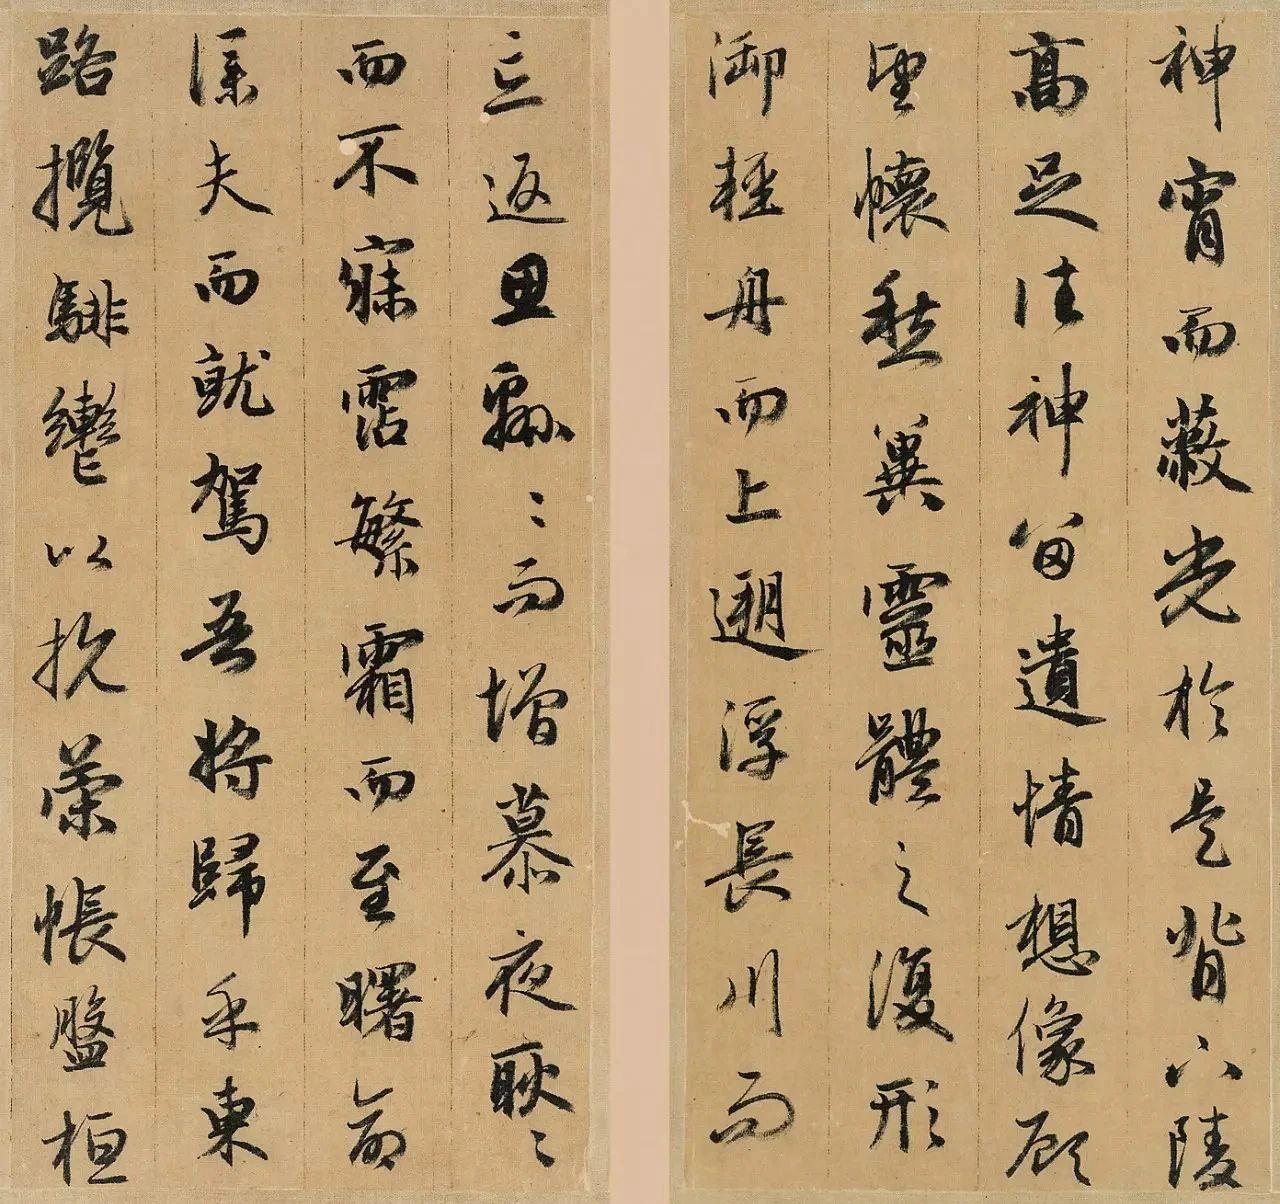 神宵而蔽光於是背下陵
高足往神留遺情想像顾
望懷愁冀靈體之復形
御輕舟而上遡浮長川而
忘返思緜〻而增慕夜耿〻
而不寐霑繁霜而至曙命
僕夫而就駕吾將歸乎東
路攬騑轡以抗策悵盤桓